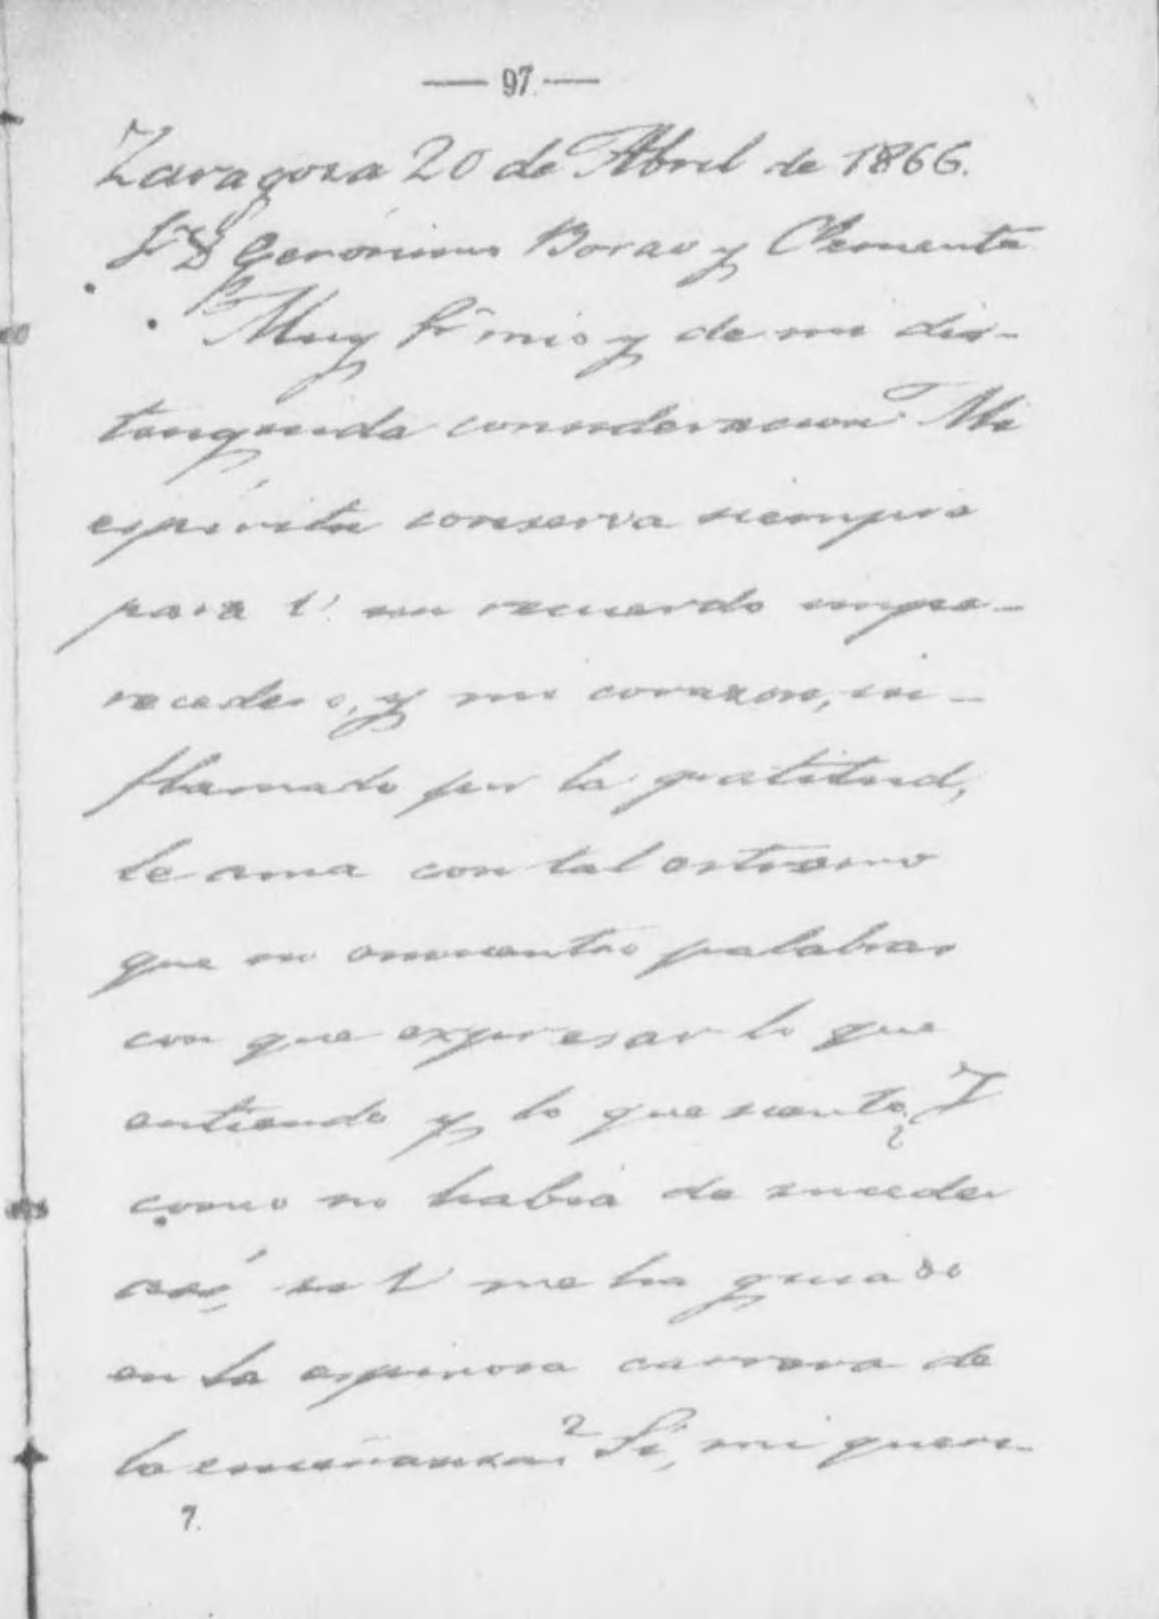 — 97 —
Zaragoza 20 de Abril de 1866.
Sr. D. Gerónimo Borao y Clemente
Muy Sr. mio y de mi dis-
tinguida consideracion: Mi
espíritu conserva siempre
para V. un recuerdo impe-
recedero, y mi corazon, in-
flamado por la gratitud,
le ama con tal extremo
que no encuentro palabras
con que expresar lo que
entiendo y lo que siento ¿Y
como no habia de suceder
así, si V. me ha guiado
en la espinosa carrera de
la enseñanza? Sí, mi queri-
7.